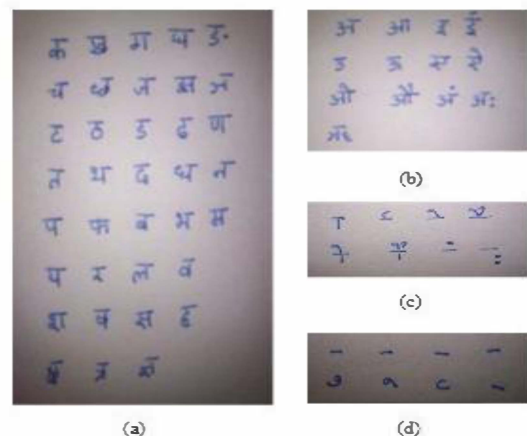 क ख ग घ ङ
च छ ज झ ञ
ट ठ ड ढ ण
त थ द ध न
प फ ब भ म
य र ल व
श ष स ह
क्ष त्र ज्ञ
(a)
अ आ इ ई
उ ऊ ए ऐ
ओ औ अं अः
ऋ
(b)
(c)
(d)